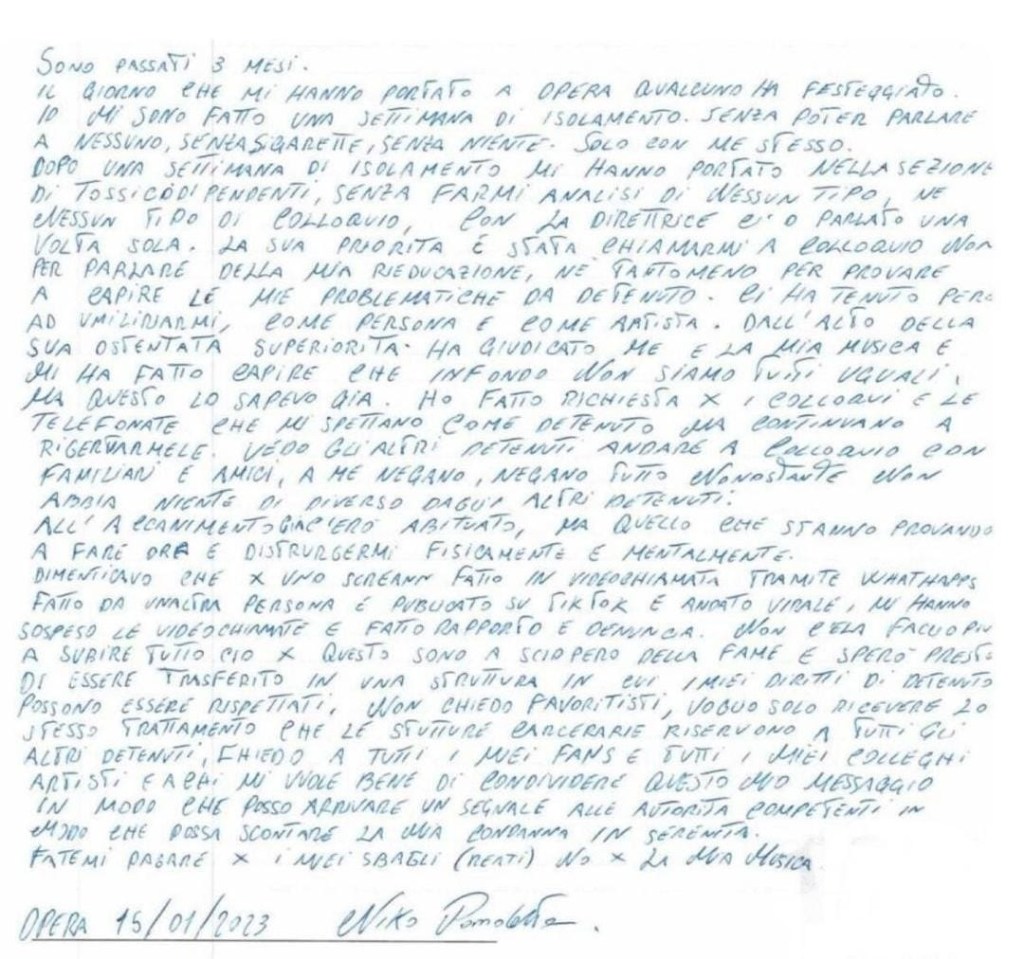 SONO PASSATI 3 MESI.
IL GIORNO CHE MI HANNO PORTATO A OPERA QUALCUNO HA FESTEGGIATO.
IO MI SONO FATTO UNA SETTIMANA DI ISOLAMENTO. SENZA POTER PARLARE
A NESSUNO, SENZA SIGARETTE, SENZA NIENTE. SOLO CON ME STESSO.
DOPO UNA SETTIMANA DI ISOLAMENTO MI HANNO PORTATO NELLA SEZIONE
DI TOSSICODIPENDENTI, SENZA FARMI ANALISI DI NESSUN TIPO, NE
NESSUN TIPO DI COLLOQUIO, CON LA DIRETTRICE CI O PARLATO UNA
VOLTA SOLA. LA SUA PRIORITA E STATA CHIAMARMI A COLLOQUIO NON
PER PARLARE DELLA MIA RIEDUCAZIONE, NE TANTOMENO PER PROVARE
A CAPIRE LE MIE PROBLEMATICHE DA DETENUTO. CI HA TENUTO PERO
AD UMILIRIARMI, COME PERSONA E COME ARTISTA. DALL'ALTO DELLA
SUA OSTENTATA SUPERIORITA. HA GIUDICATO ME E LA MIA MUSICA E
MI HA FATTO CAPIRE CHE INFONDO NON SIAMO TUTTI UGUALI,
MA QUESTO LO SAPEVO GIA. HO FATTO RICHIESTA X I COLLOQUI E LE
TELEFONATE CHE MI SPETTANO COME DETENUTO MA CONTINUANO A
RIGERTARMELE. VEDO GLI ALTRI DETENUTI ANDARE A COLLOQUIO CON
FAMILIARI E AMICI, A ME NEGANO, NEGANO TUTTO NONOSTANTE NON
ABBIA NIENTE DI DIVERSO DAGLI ALTRI DETENUTI.
ALL'ACCANIMENTO GIA C'ERO ABITUATO, MA QUELLO CHE STANNO PROVANDO
A FARE ORA E DISTRURGERMI FISICAMENTE E MENTALMENTE.
DIMENTICAVO CHE X UNO SCREANN FATTO IN VIDEOCHIAMATA TRAMITE WHATHAPPS
FATTO DA UNALTRA PERSONA E PUBLICATO SU TIKTOK E ANDATO VIRALE, MI HANNO
SOSPESO LE VIDEOCHIAMATE E FATTO RAPPORTO E DENUNCIA. NON CELA FACCIO PIU
A SUBIRE TUTTO CIO X QUESTO SONO A SCIOPERO DELLA FAME E SPERO PRESTO
DI ESSERE TRASFERITO IN UNA STRUTTURA IN CUI I MIEI DIRITTI DI DETENUTO
POSSONO ESSERE RISPETTATI, NON CHIEDO FAVORITISTI, VOGLIO SOLO RICEVERE LO
STESSO TRATTAMENTO CHE LE STUTTURE CARCERARIE RISERVONO A TUTTI GLI
ALTRI DETENUTI, CHIEDO A TUTTI I MIEI FANS E TUTTI I MIEI COLLEGHI
ARTISTI E A CHI MI VUOLE BENE DI CONDIVIDERE QUESTO MIO MESSAGGIO
IN MODO CHE POSSO ARRIVARE UN SEGNALE ALLE AUTORITA COMPETENTI IN
MODO CHE POSSA SCONTARE LA MIA CONDANNA IN SERENITA.
FATEMI PAGARE X I MIEI SBAGLI (REATI) NO X LA MIA MUSICA.
OPERA 15/01/2023 Niko Pandetta.